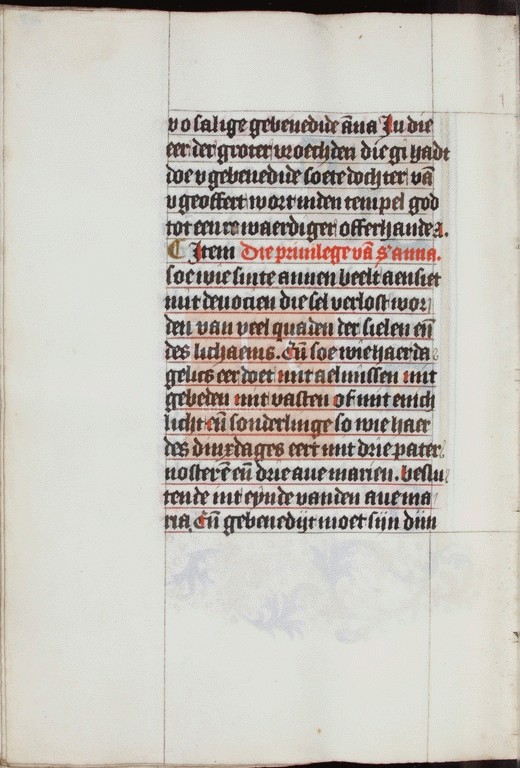 v o salige gebenedide āna In die
eer der groter vroechden die gi hadt
doe v gebenedide soete dochter vā
v geoffert wort inden tempel god
tot eenre waerdiger offerhande A.
Item Die priuilege vā s anna.
soe wie sinte annen beelt aensiet
mit deuocien die sel verlost wor
den van veel quaden der sielen eñ
des lichaems. Eñ soe wie haer da
gelics eer doet mit aelmissen mit
gebeden mit vasten of mit enich
licht eñ sonderlinge so wie haer
des dinxdages eert mit drie pater
noster ē eñ drie aue marien. beslu
tende int eynde vanden aue ma
ria. Eñ gebenedijt moet sijn dijn